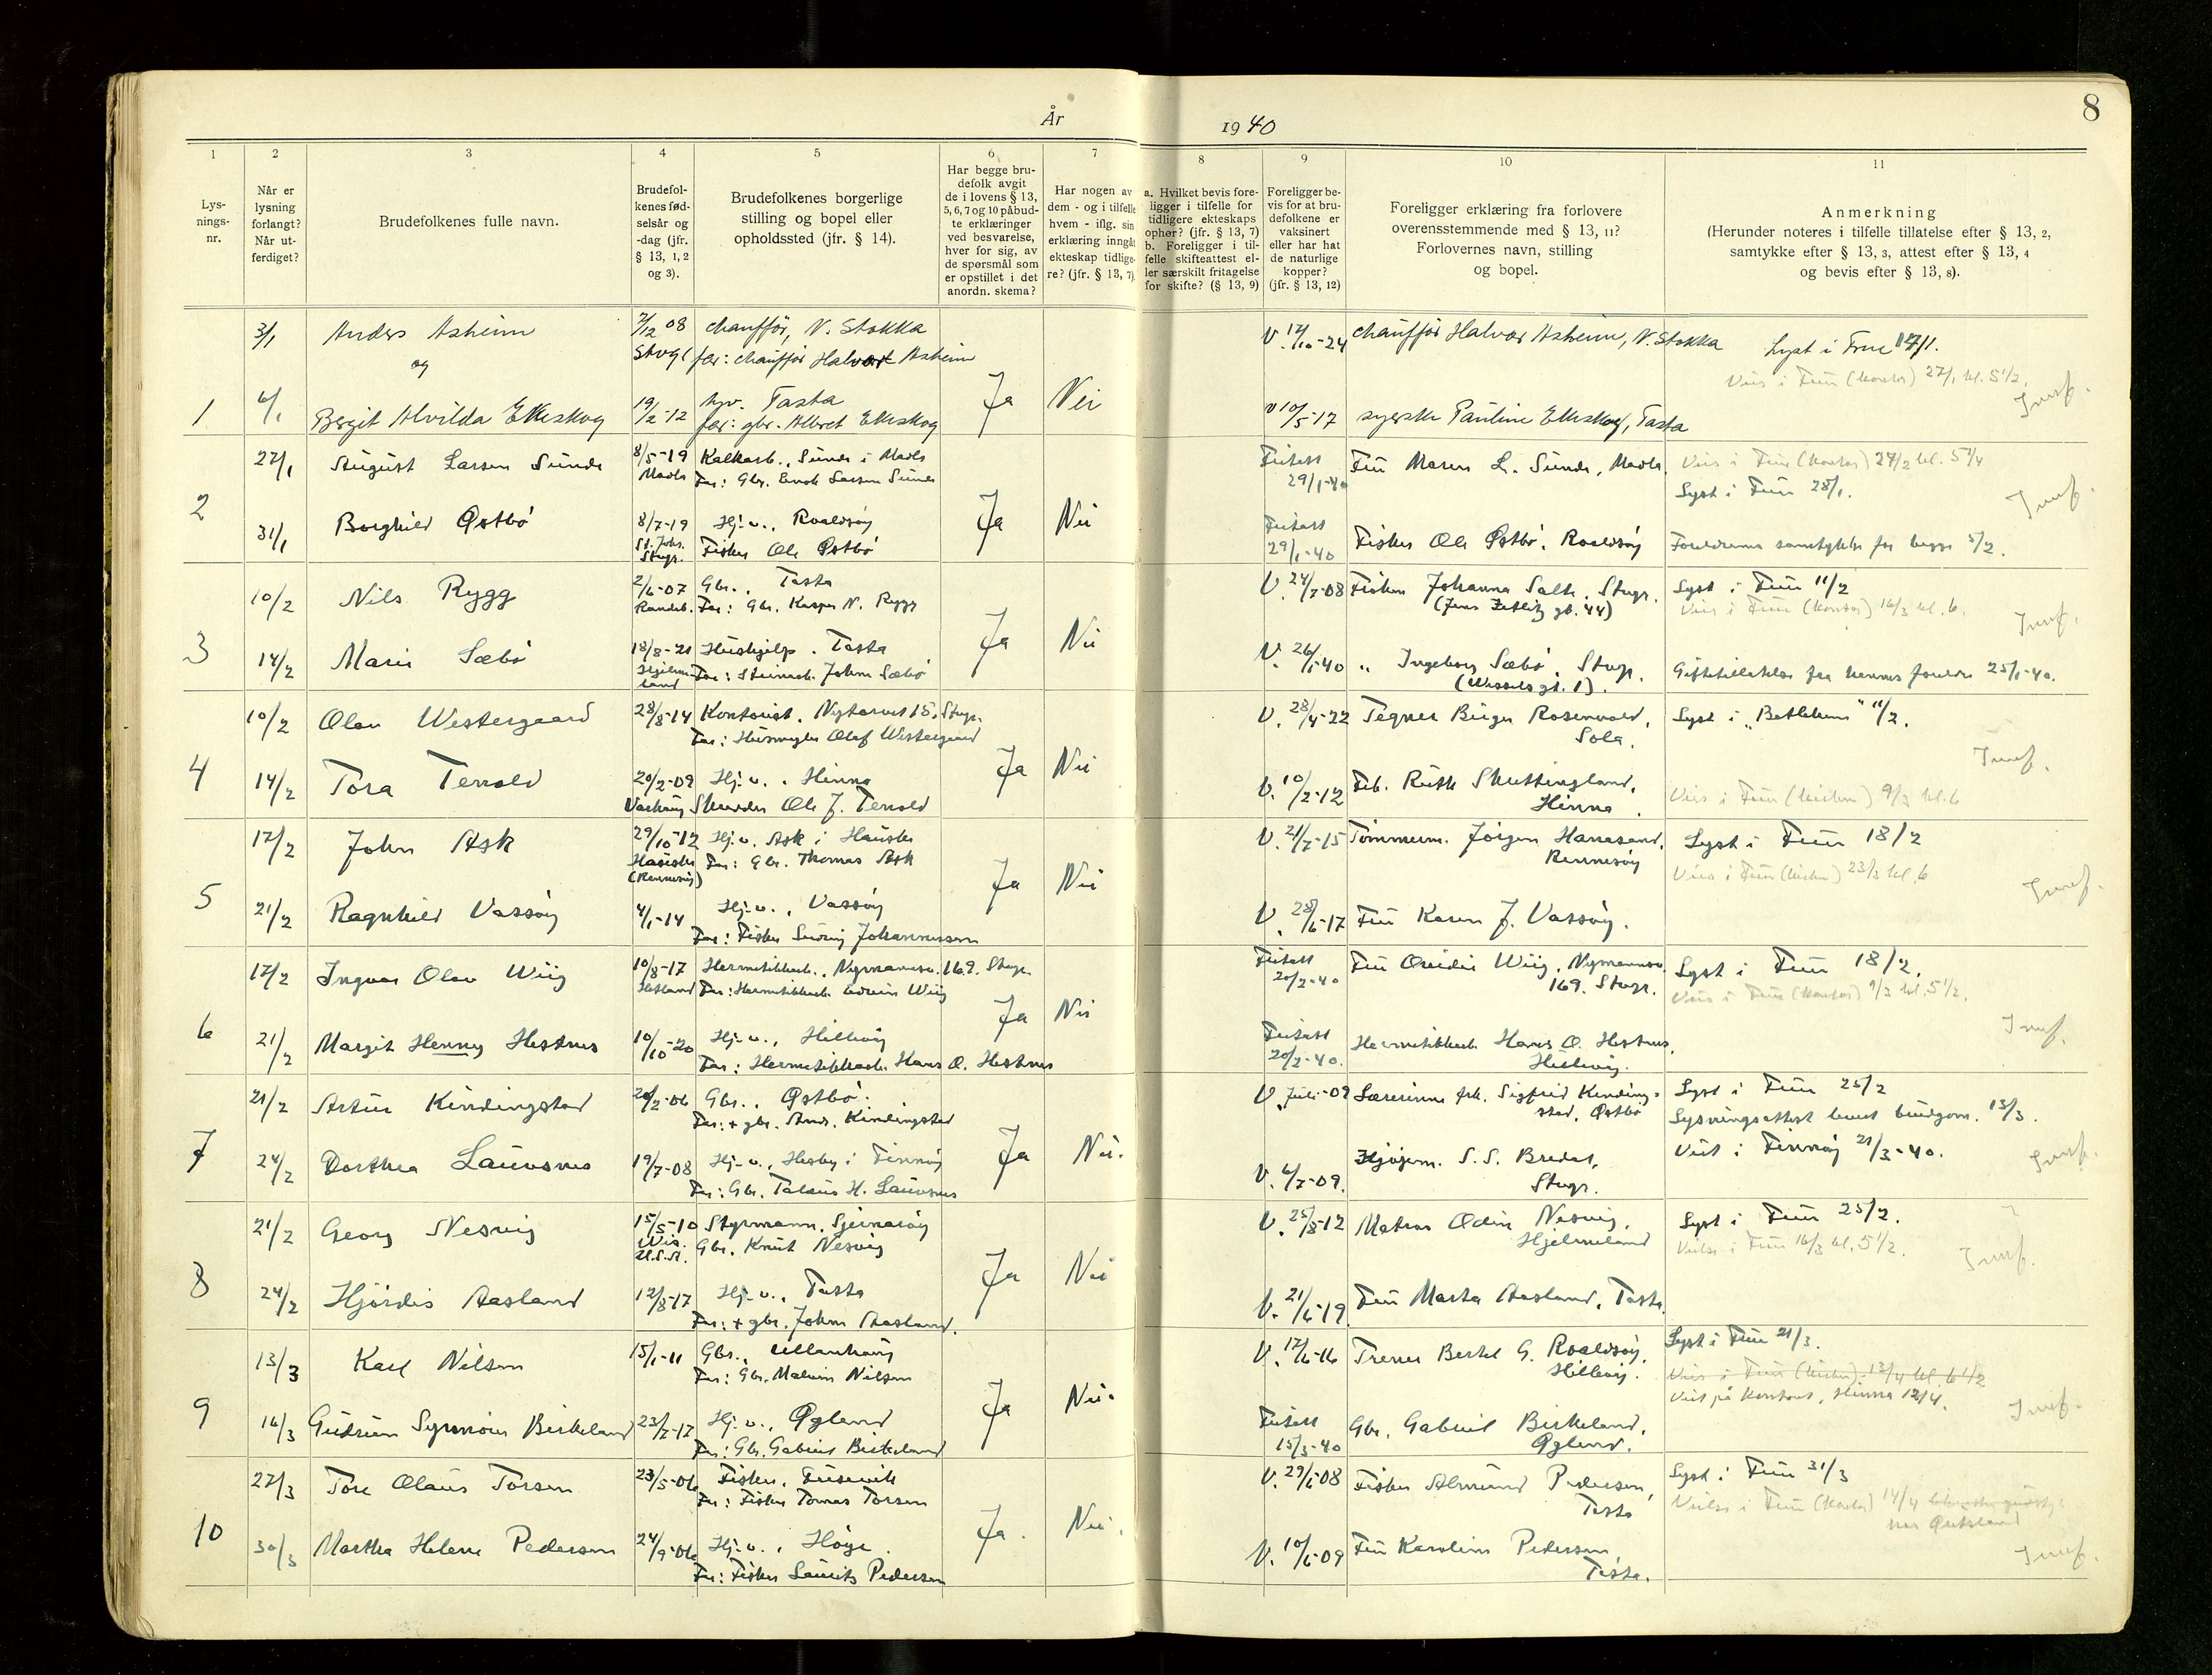 8
År
1940
1
2
3
4
5
6
7
8
9
10
11
Lys-
nings-
nr.
Når er
lysning
forlangt?
Når ut-
ferdiget?
Brudefolkenes fulle navn.
Brudefol-
kenes fød-
selsår og
-dag (jfr.
§ 13, 1, 2
og 3).
Brudefolkenes borgerlige
stilling og bopel eller
opholdssted (jfr. § 14).
Har begge bru-
defolk avgit
de i lovens § 13,
5, 6, 7 og 10 påbud-
te erklæringer
ved besvarelse,
hver for sig, av
de spørsmål som
er opstillet i det
anordn. skema?
Har nogen av
dem - og i tilfelle
hvem - iflg. sin
erklæring inngåt
ekteskap tidlige-
re? (jfr. § 13, 7)
a. Hvilket bevis fore-
ligger i tilfelle for
tidligere ekteskaps
ophør? (jfr. § 13, 7)
b. Foreligger i til-
felle skifteattest el-
ler særskilt fritagelse
for skifte? (§ 13, 9)
Foreligger be-
vis for at bru-
defolkene er
vaksinert
eller har hat
de naturlige
kopper?
(jfr. § 13, 12)
Foreligger erklæring fra forlovere
overensstemmende med § 13, 11?
Forlovernes navn, stilling
og bopel.
Anmerkning
(Herunder noteres i tilfelle tillatelse efter § 13, 2,
samtykke efter § 13, 3, attest efter § 13, 4
og bevis efter § 13, 8).
3/1 Anders Asheim 7/12 08 chauffør, N. Stokka V. 17/10-24 chauffør Halvor Asheim, N. Stokka Lyst i Frue 14/1.
og Stvgr far: chauffør Halvor Asheim
1 6/1 Bergit Alvilda Ekeskog 19/2-12 hjv. Tasta Ja Nei V 10/5-17 syerske Pauline Ekeskog, Tasta
far: gbr. Albert Ekeskog
27/1 August Larsen Sunde 8/5-19 Kalkarb., Sunde i Madla 29/1-40 Fru Maren L. Sunde, Madla.
Madla Far: Gbr. Enok Larsen Sunde Lyst i Frue 28/1.
2 31/1 Borghild Østbø 8/7-19 Hj.v., Roaldsøy Ja Nei 29/1-40 Fisker Ole Østbø, Roaldsøy Foreldrenes samtykke for begge 5/2.
St. Joh. Stvgr. Fisker Ole Østbø
10/2 Nils Rygg 2/6-07 Gbr., Tasta V. 24/7-08 Frøken Johanna Salte, Stvgr. Lyst i Frue 11/2
Randab. Far: Gbr. Kasper N. Rygg (Jens Zetlitz gt. 44) Vies i Frue (kontor) 16/3 kl. 6.
3 14/2 Marie Sæbø 18/8-21 Hushjelp, Tasta Ja Nei V. 26/1-40 " Ingeborg Sæbø, Stvgr. Giftetillatelse fra hennes foreldre 25/1-40.
Hjelmeland Far: John Sæbø (Wesselsgt. 1).
10/2 Olav Westergaard 28/8-14 Kontorist, Nytorvet 15, Stvgr. V. 28/4-22 Tegner Birger Rosenvold, Lyst i "Betlehem" 11/2.
Far: Olaf Westergaard Sola.
4 14/2 Tora Terrold 20/2-09 Hj.v., Hinna Ja Nei V. 10/2-12 Frk. Ruth Skuttingland, Vies i Frue (kirken) 9/3 kl. 6
Varhaug Skredder Ole J. Terrold Hinna.
17/2 John Ask 29/10-12 Hj.v. Ask i Hausken V. 21/7-15 Tømmerm. Jørgen Hanasand, Lyst i Frue 18/2
Hausken Far: Gbr. Thomas Ask Rennesøy Vies i Frue (kirken) 23/3 kl. 6
(Rennesøy)
5 21/2 Ragnhild Vassøy 4/1-14 Hj.v., Vassøy Ja Nei V. 28/6-17 Fru Karen J. Vassøy.
Far: Fisker Johannessen
17/2 Ingvar Olav Wiig 10/8-17 Hermetikkarb., Nymannsv. 169, Stvgr. 20/2-40 Fru Wiig, Nymannsv. Lyst i Frue 18/2.
Hetland Far: Hermetikkarb. Edvin Wiig 169. Stvgr. Vies i Frue (kontor) 9/3 kl. 5 1/2.
6 21/2 Margit Henny Hestnes 10/10-20 Hj.v., Hillevåg Ja Nei 20/2-40. Hermetikkarb. Hans O. Hestnes,
Far: Hermetikkarb. Hans O. Hestnes Hillevåg.
21/2 Artur Kindingstad 20/2-06 Gbr., Østbø. V. Juli-09 Lærerinne frk. Sigfrid Kinding- Lyst i Frue 25/2
Far: + gbr. Kindingstad stad, Østbø Lysningsattest levert brudgom. 13/3.
7 24/2 Dorthea Lauvsnes 19/7-08 Hj.v., Hesby i Finnøy Ja Nei. V. 6/7-09. S. S. Bredal, Viet i Finnøy 21/3-40.
Far: Gbr. H. Lauvsnes Stvgr.
21/2 Georg Nesvig 15/5-10 Styrmann, Sjernarøy V. 25/8-12 Matros Odin Nesvig, Lyst i Frue 25/2.
Wis. U.S.A. Gbr. Knut Nesvig Hjelmeland Vielse i Frue 16/3 kl. 5 1/2.
8 24/2 Hjørdis Aasland 12/8-17 Hj.v., Tasta Ja Nei V. 21/6-19. Fru Marta Aasland, Tasta.
Far: + gbr. John Aasland.
13/3 Karl Nilsen 15/1-11 Gbr., Ullanhaug V. 17/6-16 Bertel G. Roaldsøy, Lyst i Frue 21/3.
Far: Gbr. Malvin Nilsen Hillevåg. Vies i Frue (kirken) 13/4 kl. 6 1/2
Viet på kontoret, Hinna 12/4.
9 16/3 Gudrun Synnøve Birkeland 23/7-17 Hj.v., Øgland Ja Nei. 15/3-40 Gbr. Gabriel Birkeland,
Far: Gbr. Gabriel Birkeland Øgland.
27/3 Tore Olaus Torsen 23/5-06 Fisker, Dusavik V. 29/6-08 Fisker Almund Pedersen, Lyst i Frue 31/3
Far: Fisker Tomas Torsen Tasta Vielse i Frue (kontor) 14/4
10 30/3 Martha Helene Pedersen 24/9-06 Hj.v., Høye. Ja. Nei. V. 10/6-09 Fru Karoline Pedersen
Far: Fisker Laurits Pedersen Tasta.